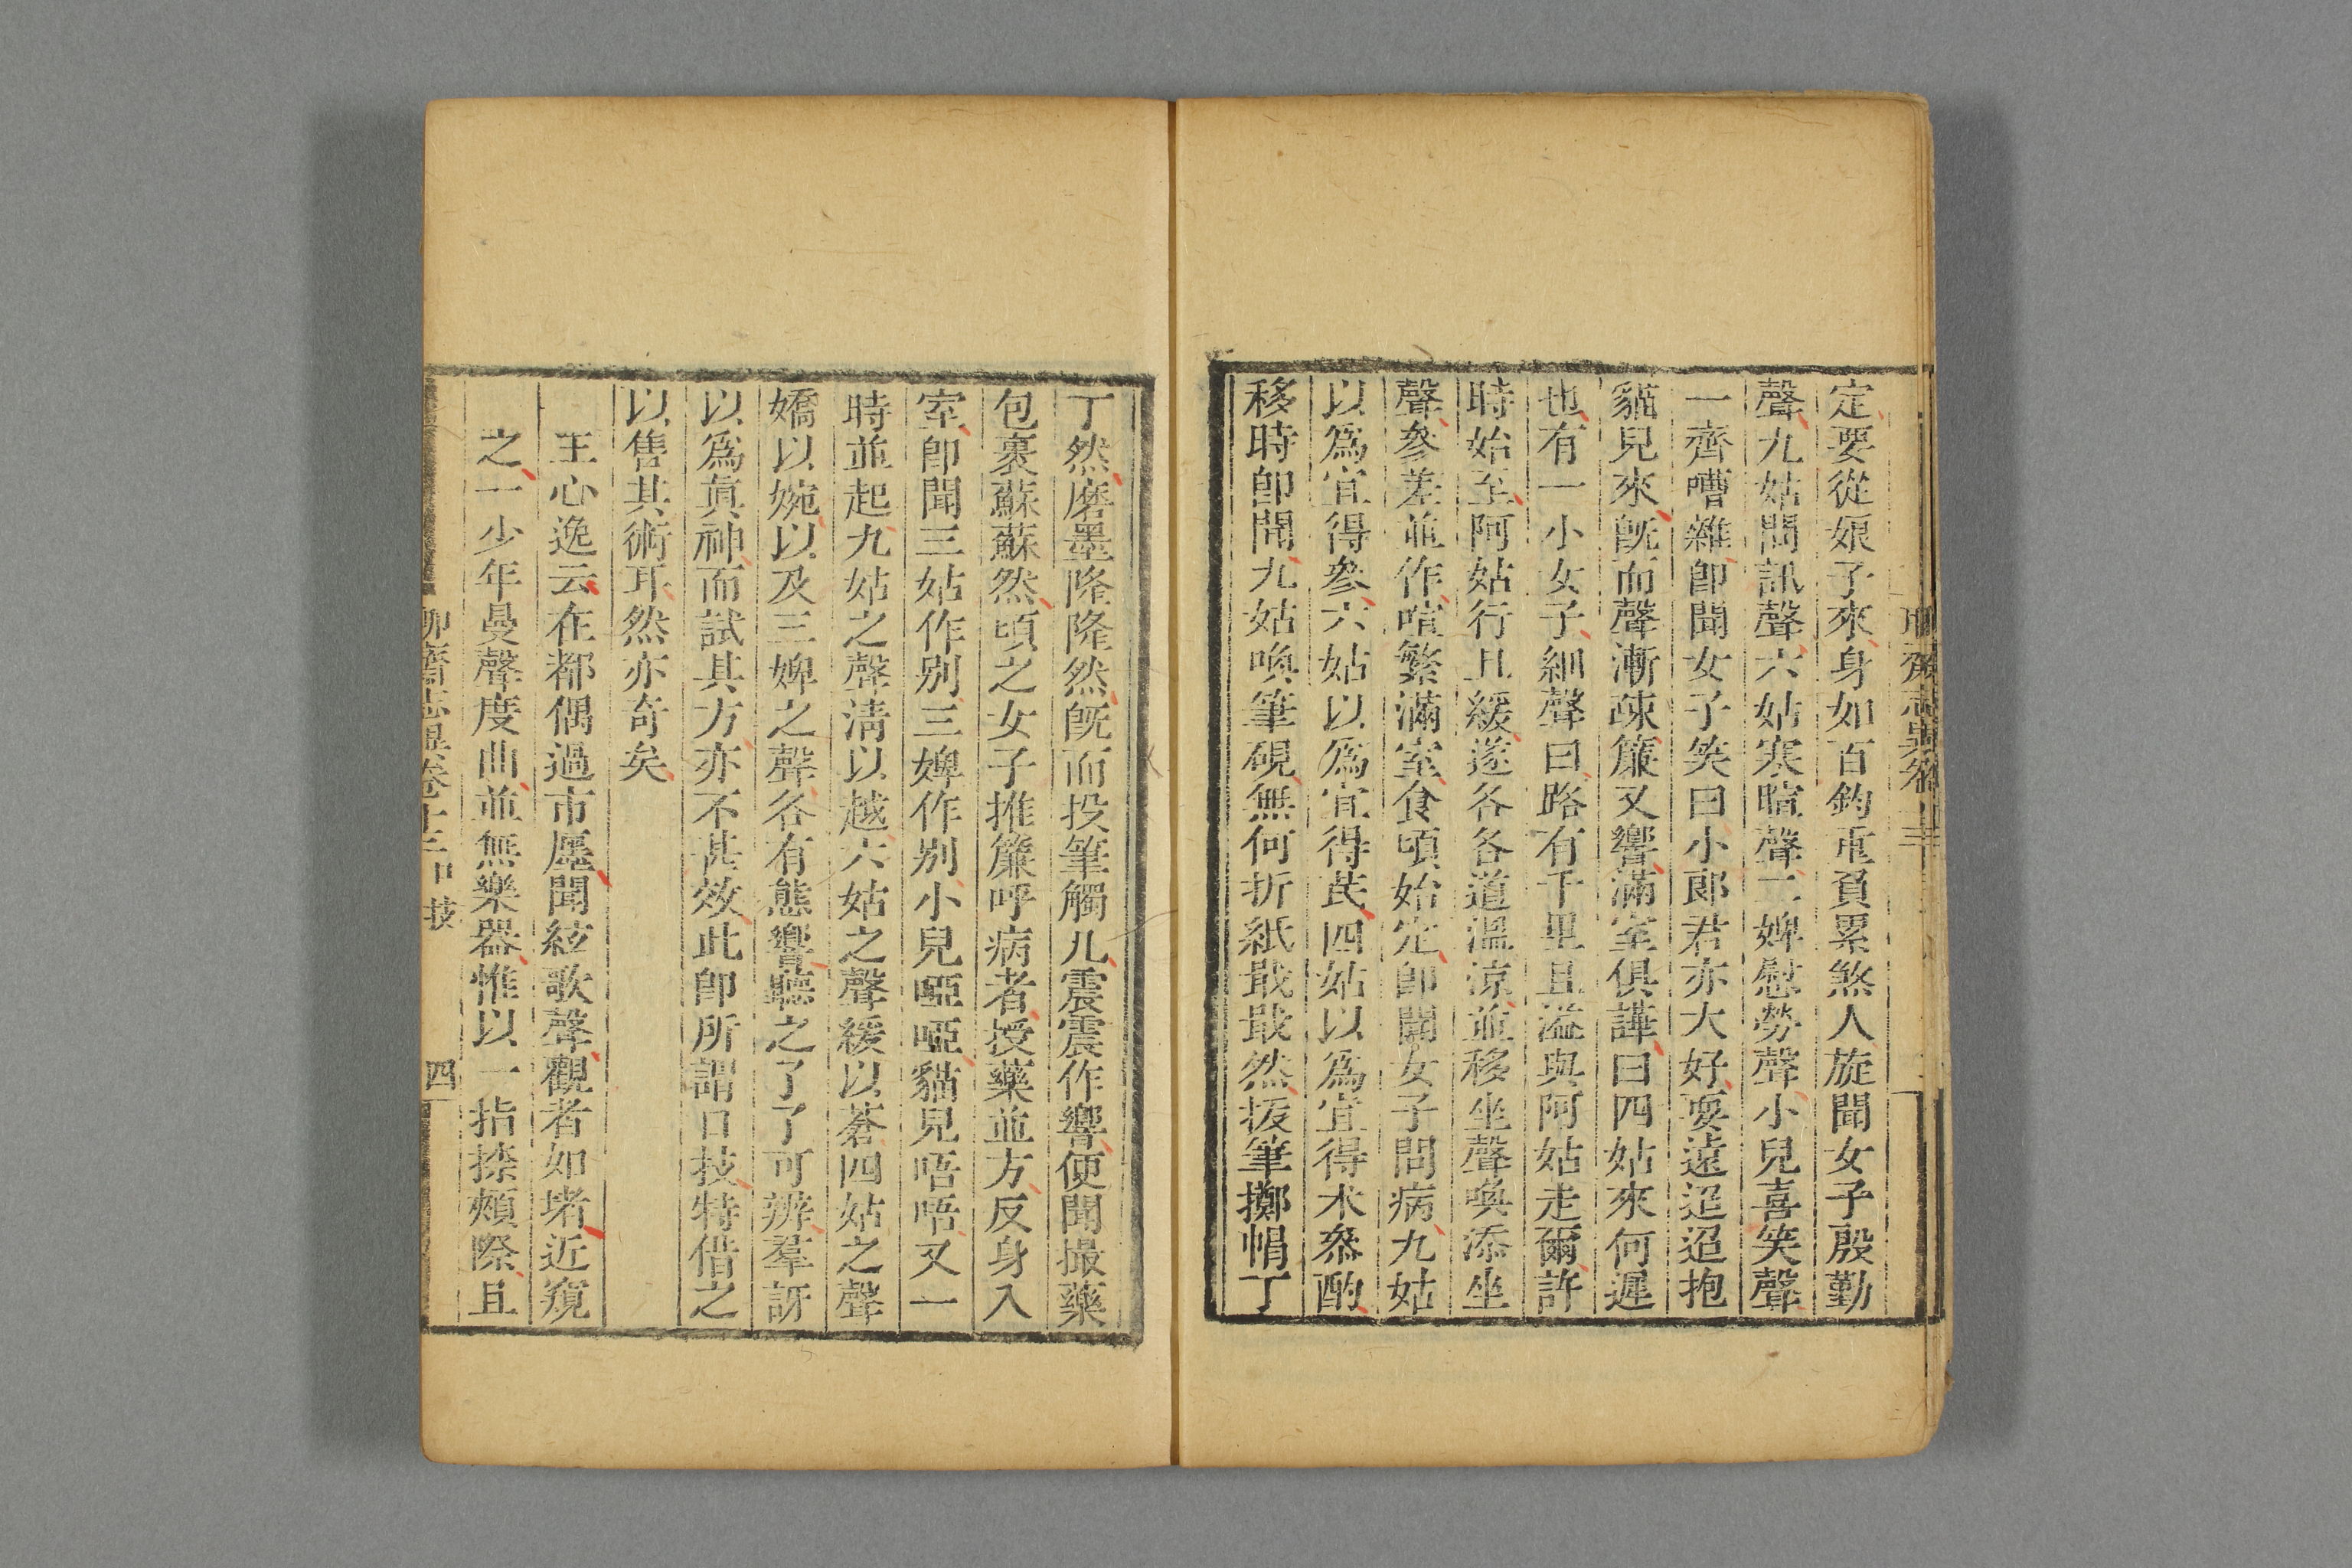 定要從娘子來身如百鈞重負累煞人旋聞女子殷勤
聲九姑問訊聲六姑寒暄聲二婢慰勞聲小兒喜笑聲
一齊嘈雜卽聞女子笑曰小郎君亦大好耍遠迢迢抱
貓兒來旣而聲漸疎簾又響滿室俱譁曰四姑來何遲
也有一小女子細聲曰路有千里且溢與阿姑走爾許
時始至阿姑行且緩遂各各道溫凉並移坐聲喚添坐
聲參差並作喧繁滿室食頃始定卽聞女子問病九姑
以爲宜得參六姑以爲宜得芪四姑以爲宜得朮參酌
移時卽聞九姑喚筆硯無何折紙戢戢然拔筆擲帽丁
丁然磨墨隆隆然旣而投筆觸几震震作響便聞撮藥
包裹蘇蘇然頃之女子推簾呼病者授藥並方反身入
室卽聞三姑作别三婢作别小兒啞啞貓兒唔唔又一
時並起九姑之聲清以越六姑之聲緩以蒼四姑之聲
嬌以婉以及三婢之聲各有態響聽之了了可辨羣訝
以爲眞神而試其方亦不甚效此卽所謂口技特借之
以售其術耳然亦奇矣
王心逸云在都偶過市廛聞絃歌聲觀者如堵近窺
之一少年曼聲度曲並無樂器惟以一指捺頰際且
聊齋志異卷十三 口技 四